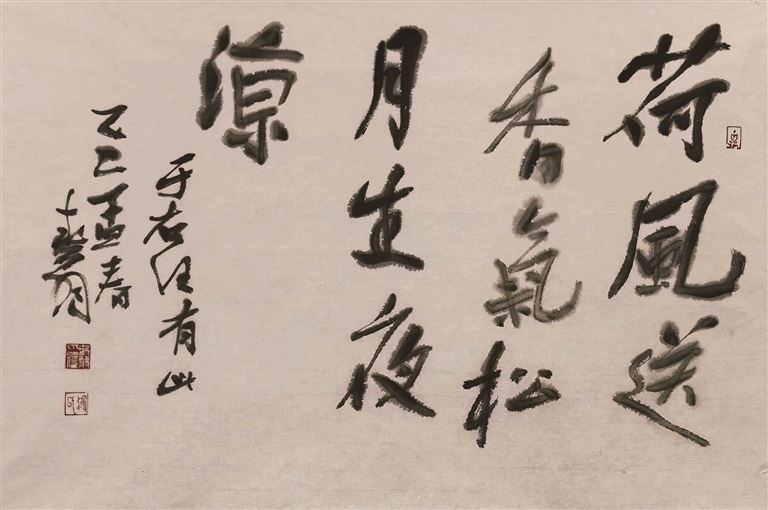 荷風送
香氣松
月生夜
涼
于右任有此
乙巳孟春